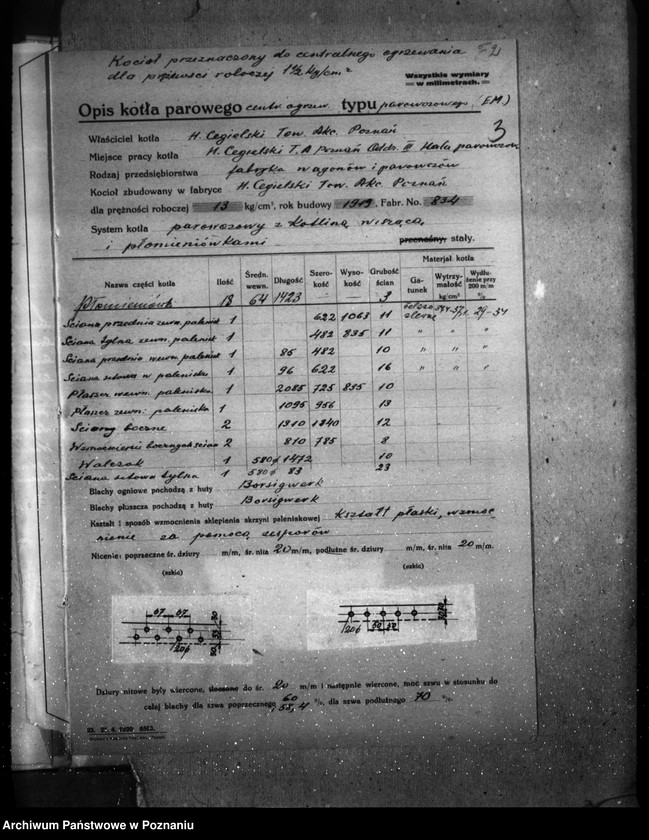 Kocioł przeznaczony do centralnego ogrzewania
dla prężności roboczej 1½ kg/cm²
Wszystkie wymiary
w milimetrach.
Opis kotła parowego centr. ogrzew. typu parowozowego (EM.)
3
Właściciel kotła H. Cegielski Tow. Akc. Poznań
Miejsce pracy kotła H. Cegielski T. A. Poznań Oddz. III Hala parowozów
Rodzaj przedsiębiorstwa fabryka wagonów i parowozów
Kocioł zbudowany w fabryce H. Cegielski Tow. Akc. Poznań
dla prężności roboczej 13 kg/cm², rok budowy 1919. Fabr. No. 834
System kotła parowozowy z kotliną wiszącą
i płomieniówkami przenośny stały.
Nazwa części kotła Ilość Średn. wewn. Długość Szerokość Wysokość Grubość ścian Materjał kotła
Gatunek Wytrzymałość kg/cm² Wydłużenie przy 200 m/m %
Płomieniówki 18 64 1423 3
Ściana przednia zewn. palenisk 1 622 1063 11 29-34
Ściana tylna zewn. palenisk 1 482 835 11 " " "
Ściana przednia wewn. palenisk 1 85 482 10 " " "
Ściana sitowa w palenisku 1 96 622 16 " " "
Płaszcz wewn. paleniska 1 2085 725 835 10
Płaszcz zewn. paleniska 1 1095 956 13
Ściany boczne 2 1310 1340 12
Wzmocnienie bocznych ścian 2 810 785 8
Walczak 1 580 ø 1472 10
Ściana sitowa tylna 1 580 ø 83 23
Blachy ogniowe pochodzą z huty Borsigwerk
Blachy płaszcza pochodzą z huty Borsigwerk
Kształt i sposób wzmocnienia sklepienia skrzyni paleniskowej Kształt płaski, wzmoc
nienie za pomocą zesporów
Nicenie: poprzeczne śr. dziury m/m, śr. nita 20 m/m, podłużne śr. dziury m/m, śr. nita 20 m/m.
(szkic) (szkic)
67 67 30
33
30
20ø
30
30
20ø 50 50
Dziury nitowe były wiercone, tłoczone do śr. 20 m/m i następnie wiercone, moc szwu w stosunku do
całej blachy dla szwu poprzecznego 60, 58,4 %, dla szwu podłużnego 70 %.
Archiwum Państwowe w Poznaniu